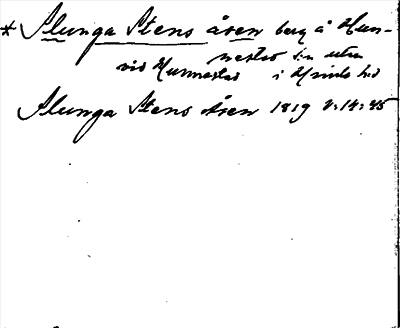 * Slunga Stens åsen berg å Hun-
nestad s:n utm
vid Hunnestad i Himle hd
Slunga Stens åsen 1819 V:14:45